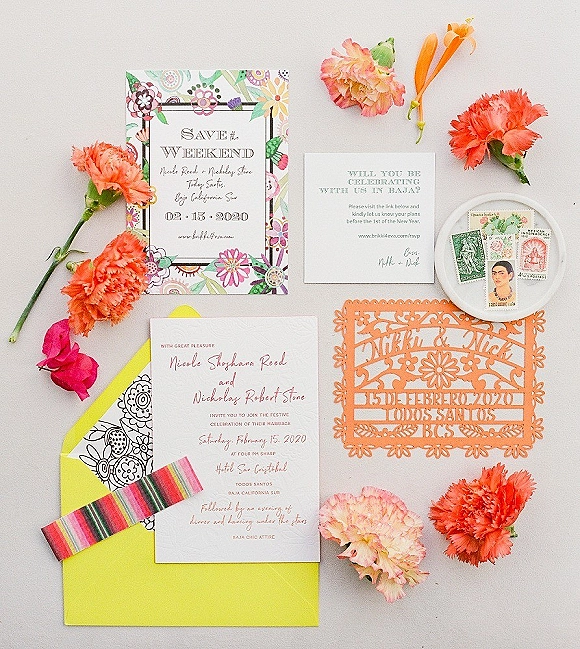 SAVE the
WEEKEND
Nicole Reed + Nicholas Stone
Todos Santos,
Baja California Sur
02 · 15 · 2020
www.brikki4eva.com
WILL YOU BE
CELEBRATING
WITH US IN BAJA?
Please visit the link below and
kindly let us know your plans
before the 1st of the New Year.
www.brikki4eva.com/rsvp
Nikki + Nick
WITH GREAT PLEASURE
Nicole Shoshana Reed
and
Nicholas Robert Stone
INVITE YOU TO JOIN THE FESTIVE
CELEBRATION OF THEIR MARRIAGE
Saturday, February 15, 2020
AT FOUR PM SHARP
Hotel San Cristóbal
TODOS SANTOS
BAJA CALIFORNIA SUR
Followed by an evening of
dinner and dancing under the stars
BAJA CHIC ATTIRE
Nikki & Nick
15 DE FEBRERO 2020
TODOS SANTOS
BCS